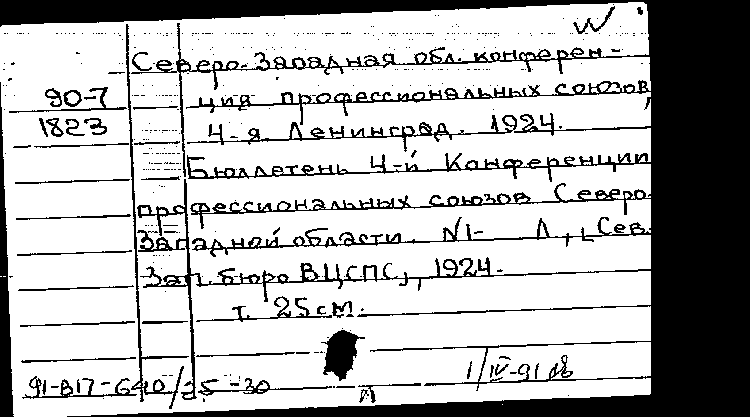 W
Северо-Западная обл. конферен-
90-7 ция профессиональных союзов,
1823 4-я. Ленинград. 1924.
Бюллетень 4-й Конференции
профессиональных союзов Северо-
Западной области. N1- Л., [Сев.
Зап. бюро ВЦСПС], 1924.
т. 25см.
1/IV-91
91-В17-640/25-30 П